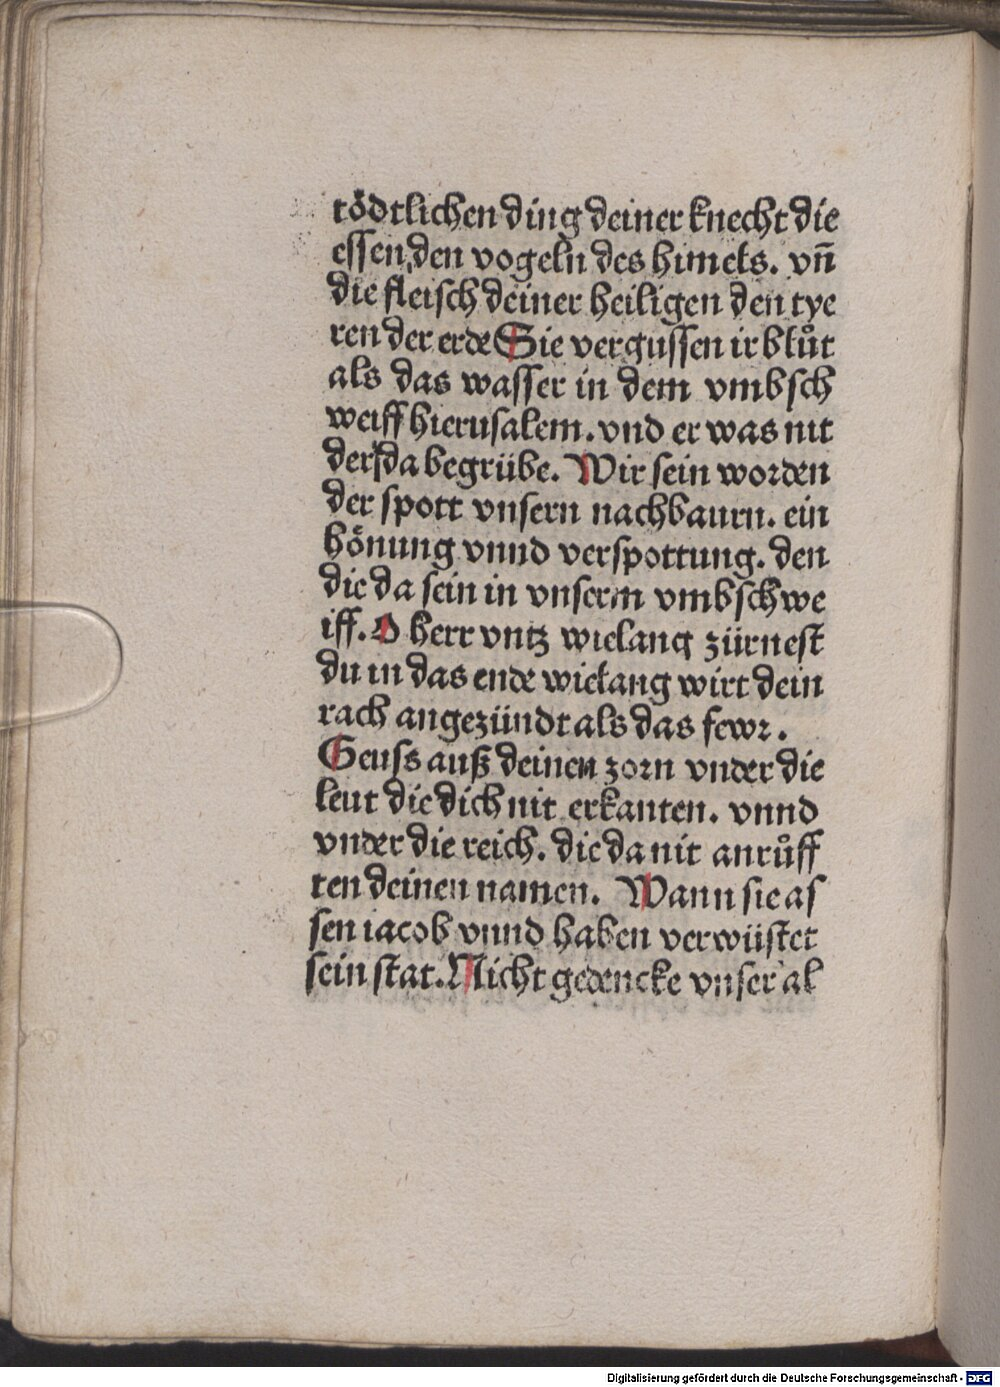 tödtlichen ding deiner knecht die
essen den vogeln des himels. vñ
die fleisch deiner heiligen den tye
ren der erde Sie vergussen ir blůt
als das wasser in dem vmbsch
weiff hierusalem. vnd er was nit
der da begrübe. Wir sein worden
der spott vnsern nachbaurn. ein
hönung vnnd verspottung. den
die da sein in vnserm vmbschwe
iff. O herr vntz wielang zürnest
du in das ende wielang wirt dein
rach angezündt als das fewr.
Geuss auß deinen zorn vnder die
leut die dich nit erkanten. vnnd
vnder die reich. die da nit anrůff
ten deinen namen. Wann sie as
sen iacob vnnd haben verwüstet
sein stat. Nicht gedencke vnser al
Digitalisierung gefördert durch die Deutsche Forschungsgemeinschaft - DFG